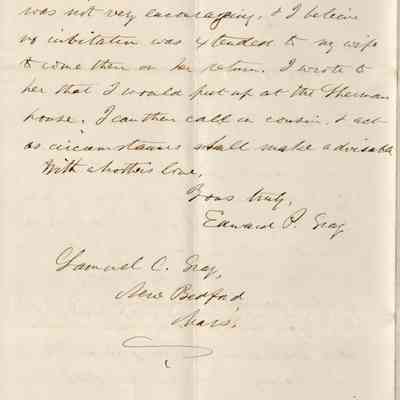 was not very encouraging, & I believe
no invitation was extended to my wife
to come then on her return. I wrote to
her that I would put up at the Sherman
house. I can then call on cousin, & act
as circumstances shall make advisable
With a brothers love,
Yours truly,
Edward P. Gray
Samuel C. Gray,
New Bedford
Mass.